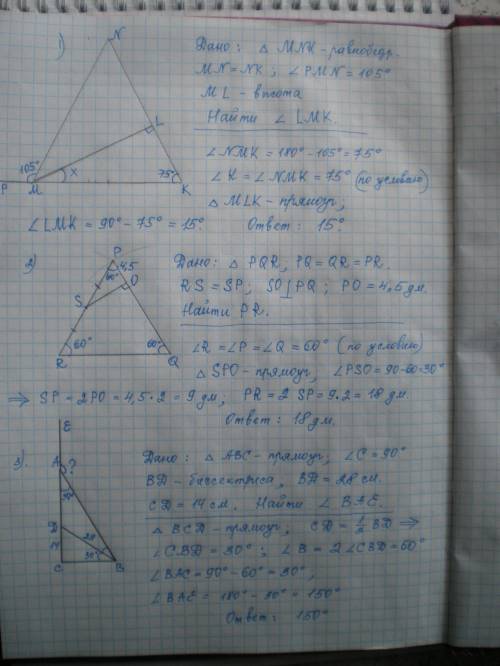 1)
N
L
105°
x
75°
P
M
K
Дано: △ MNK - равнобедр.
MN = NK; ∠PMN = 105°
ML - высота
Найти ∠ LMK.
∠NMK = 180° - 105° = 75°
∠K = ∠NMK = 75° (по условию)
△ MLK - прямоуг,
∠LMK = 90° - 75° = 15°. Ответ: 15°
2)
P
4,5
60°
O
S
60°
60°
R
Q
Дано: △ PQR, PQ = QR = PR.
RS = SP; SO⊥PQ; PO = 4,5 дм.
Найти PR.
∠R = ∠P = ∠Q = 60° (по условию)
△SPO - прямоуг, ∠PSO = 90-60=30°
⇒ SP = 2PO = 4,5 · 2 = 9 дм, PR = 2 SP = 9·2 = 18 дм.
Ответ: 18 дм.
3).
E
A
?
30°
D
28
14
30°
C
B
Дано: △ ABC - прямоуг, ∠C = 90°
BD - биссектриса, BD = 28 см.
CD = 14 см. Найти ∠ BAE.
△ BCD - прямоуг, CD = 1/2 BD ⇒
∠CBD = 30°; ∠B = 2∠CBD = 60°
∠BAC = 90° - 60° = 30°,
∠BAE = 180° - 30° = 150°
Ответ: 150°